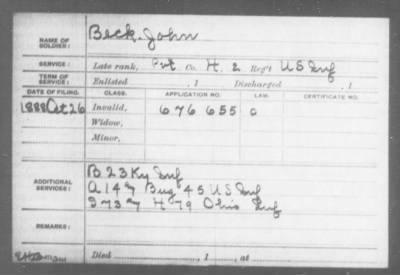 NAME OF SOLDIER: Beck, John
SERVICE: Late rank, Pvt Co. H. 2 Reg't U S Inf
TERM OF SERVICE: Enlisted , 1 Discharged , 1
DATE OF FILING. CLASS. APPLICATION NO. LAW. CERTIFICATE NO.
1888 Oct 26 Invalid, 676 655
Widow,
Minor,
ADDITIONAL SERVICES: B 23 Ky Inf
45 U S Inf
H 79 Ohio Inf
REMARKS:
Died , 1 , at